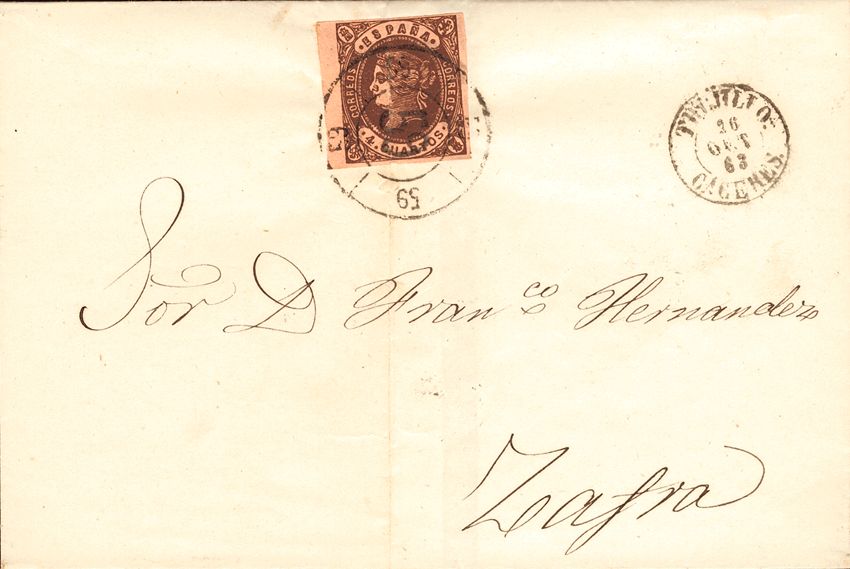 ESPAÑA
CORREOS CORREOS
4 CUARTOS
59
59
TRUJILLO.
26
OCT
63
CACERES.
Sor D Franco Hernandez
Zafra